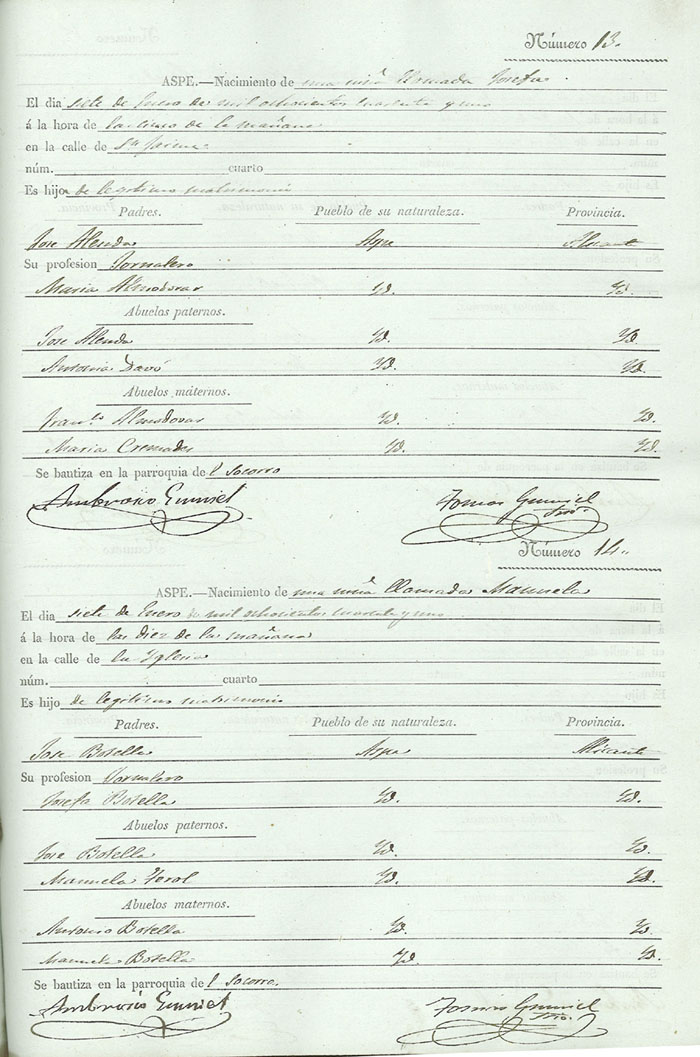 Número 13.
ASPE.—Nacimiento de una niña llamada Josefa.
El dia siete de Enero de mil ochocientos cuarenta y uno
á la hora de las cinco de la mañana
en la calle de Sn Jaime
núm. cuarto
Es hijo de legitimo matrimonio
Padres. Pueblo de su naturaleza. Provincia.
Jose Alenda Aspe Alicante
Su profesion Jornalero
Maria Almodovar Yd. Yd.
Abuelos paternos.
Jose Alenda Yd. Yd.
Antonia Davó Yd. Yd.
Abuelos maternos.
Franco Almodovar Yd. Yd.
Maria Cremades Yd. Yd.
Se bautiza en la parroquia de l Socorro
Ambrosio Tomas
Número 14.
ASPE.—Nacimiento de una niña llamada Manuela
El dia siete de Enero de mil ochocientos cuarenta y uno
á la hora de las diez de la mañana
en la calle de la Yglesia
núm. cuarto
Es hijo de legitimo matrimonio
Padres. Pueblo de su naturaleza. Provincia.
Jose Botella Aspe Alicante
Su profesion Jornalero
Josefa Botella Yd. Yd.
Abuelos paternos.
Jose Botella Yd. Yd.
Manuela Yd. Yd.
Abuelos maternos.
Antonio Botella Yd. Yd.
Manuela Botella Yd. Yd.
Se bautiza en la parroquia de l Socorro.
Ambrosio Tomas